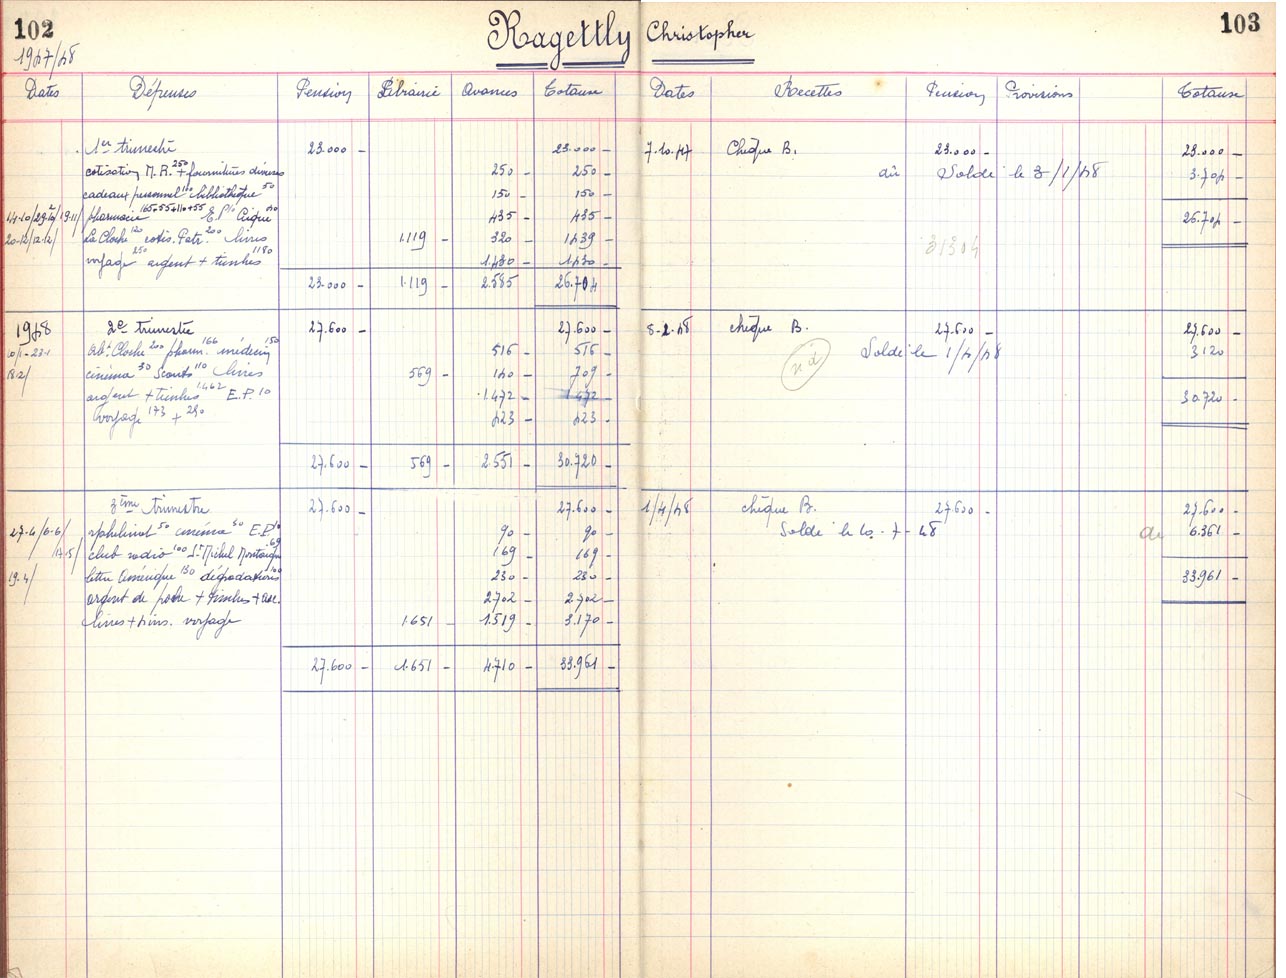 102
1947/48
Ragettly Christopher
103
Dates Dépenses Pension Librairie Avances Totaux Dates Recettes Pension Provisions Totaux
1er trimestre 23.000 - 23.000 - 7.10.47 Chèque B. 23.000 - 23.000 -
cotisation M.R. 250 + fournitures diverses 250 - 250 - dû Solde le 3/1/48 3.704 -
cadeaux personnel 100 bibliothèque 50 150 - 150 -
14-10/29-10/19-11/ pharmacie 165+55+110+55 E.P. 10 Cigue 40 435 - 435 - 26.704 -
20-12/12-12/ La Cloche 120 cotis. Patr. 200 livres 1.119 - 320 - 1439 - 31304
voyage 250 argent + timbres 1180 1.430 - 1.430 -
23.000 - 1.119 - 2.585 - 26.704 -
1948 2e trimestre 27.600 - 27.600 - 8-2.48 chèque B. 27.600 - 27.600 -
10/1-23-1 Cloche 200 pharm. 166 médecin 150 516 - 516 - Solde le 1/4/48 3120 -
18-2/ cinéma 30 Scouts 110 livres 569 - 140 - 709 -
argent + timbres 1.462 E.P. 10 1.472 - 1472 - 30.720 -
voyage 173 + 250 423 - 423 -
27.600 - 569 - 2.551 - 30.720 -
3ème trimestre 27.600 - 27.600 - 1/4/48 chèque B. 27.600 - 27.600 -
27-4/6-6/ orphelinat 50 cinéma 30 E.P. 10 90 - 90 - Solde le 10-7-48 de 6.361 -
17-5/ club radio 100 St Michel Montaigne 69 169 - 169 -
19-4/ lettre Amérique 130 dégradations 100 230 - 230 - 33.961 -
argent de poche + timbres + 2.702 - 2.702 -
livres + voyage 1.651 - 1.519 - 3.170 -
27.600 - 1.651 - 4.710 - 33.961 -